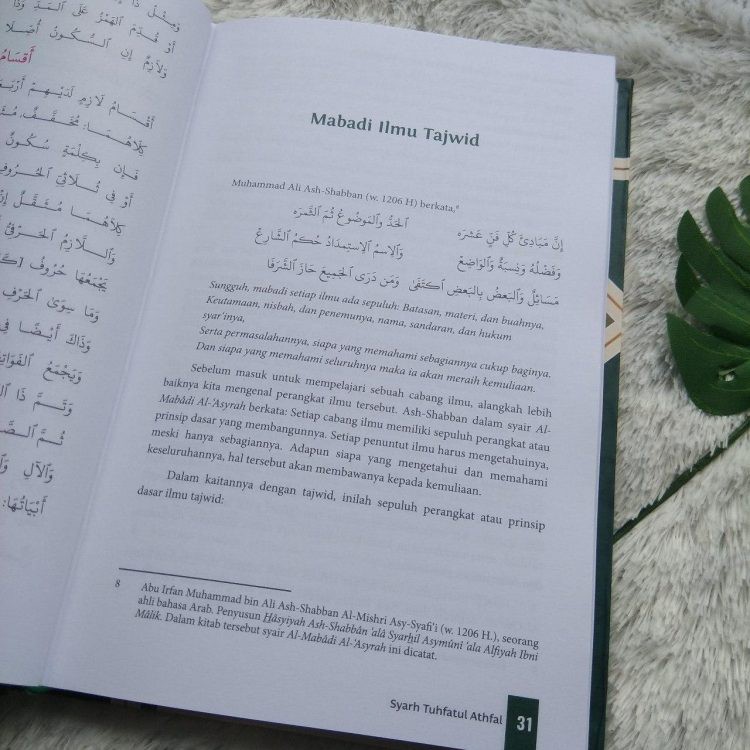 وَمِثْلُ ذَا
أَوْ قُدِّمَ الْهَمْزُ عَلَى الْمَدِّ وَذَا
وَلَازِمٌ إِنِ السُّكُونُ أُصِّلَا
أَقْسَامُ
أَقْسَامُ لَازِمٍ لَدَيْهِمْ أَرْبَعَةْ
كِلَاهُمَا مُخَفَّفٌ مُثَقَّلُ
فَإِنْ بِكِلْمَةٍ سُكُونٌ
أَوْ فِي ثُلَاثِيِّ الْحُرُوفِ
كِلَاهُمَا مُثَقَّلٌ إِنْ
وَاللَّازِمُ الْحَرْفِيُّ
يَجْمَعُهَا حُرُوفُ
وَمَا سِوَى الْحَرْفِ
وَذَاكَ أَيْضًا فِي
وَيَجْمَعُ الْفَوَاتِحَ
وَتَمَّ ذَا
ثُمَّ الصَّلَاةُ
وَالْآلِ
أَبْيَاتُهَا:
Mabadi Ilmu Tajwid
Muhammad Ali Ash-Shabban (w. 1206 H) berkata,⁸
إِنَّ مَبَادِئَ كُلِّ فَنٍّ عَشَرَه الْحَدُّ وَالْمَوْضُوعُ ثُمَّ الثَّمَرَه
وَفَضْلُهُ وَنِسْبَةٌ وَالْوَاضِعْ وَالِاسْمُ الِاسْتِمْدَادُ حُكْمُ الشَّارِعْ
مَسَائِلٌ وَالْبَعْضُ بِالْبَعْضِ اكْتَفَى وَمَنْ دَرَى الْجَمِيعَ حَازَ الشَّرَفَا
Sungguh, mabadi setiap ilmu ada sepuluh: Batasan, materi, dan buahnya,
Keutamaan, nisbah, dan penemunya, nama, sandaran, dan hukum
syar'inya,
Serta permasalahannya, siapa yang memahami sebagiannya cukup baginya.
Dan siapa yang memahami seluruhnya maka ia akan meraih kemuliaan.
Sebelum masuk untuk mempelajari sebuah cabang ilmu, alangkah lebih
baiknya kita mengenal perangkat ilmu tersebut. Ash-Shabban dalam syair Al-
Mabâdi Al-'Asyrah berkata: Setiap cabang ilmu memiliki sepuluh perangkat atau
prinsip dasar yang membangunnya. Setiap penuntut ilmu harus mengetahuinya,
meski hanya sebagiannya. Adapun siapa yang mengetahui dan memahami
keseluruhannya, hal tersebut akan membawanya kepada kemuliaan.
Dalam kaitannya dengan tajwid, inilah sepuluh perangkat atau prinsip
dasar ilmu tajwid:
8 Abu Irfan Muhammad bin Ali Ash-Shabban Al-Mishri Asy-Syafi'i (w. 1206 H.), seorang
ahli bahasa Arab. Penyusun Hâsyiyah Ash-Shabbân 'alâ Syarhil Asymûni 'ala Alfiyah Ibni
Mâlik. Dalam kitab tersebut syair Al-Mabâdi Al-'Asyrah ini dicatat.
Syarh Tuhfatul Athfal 31